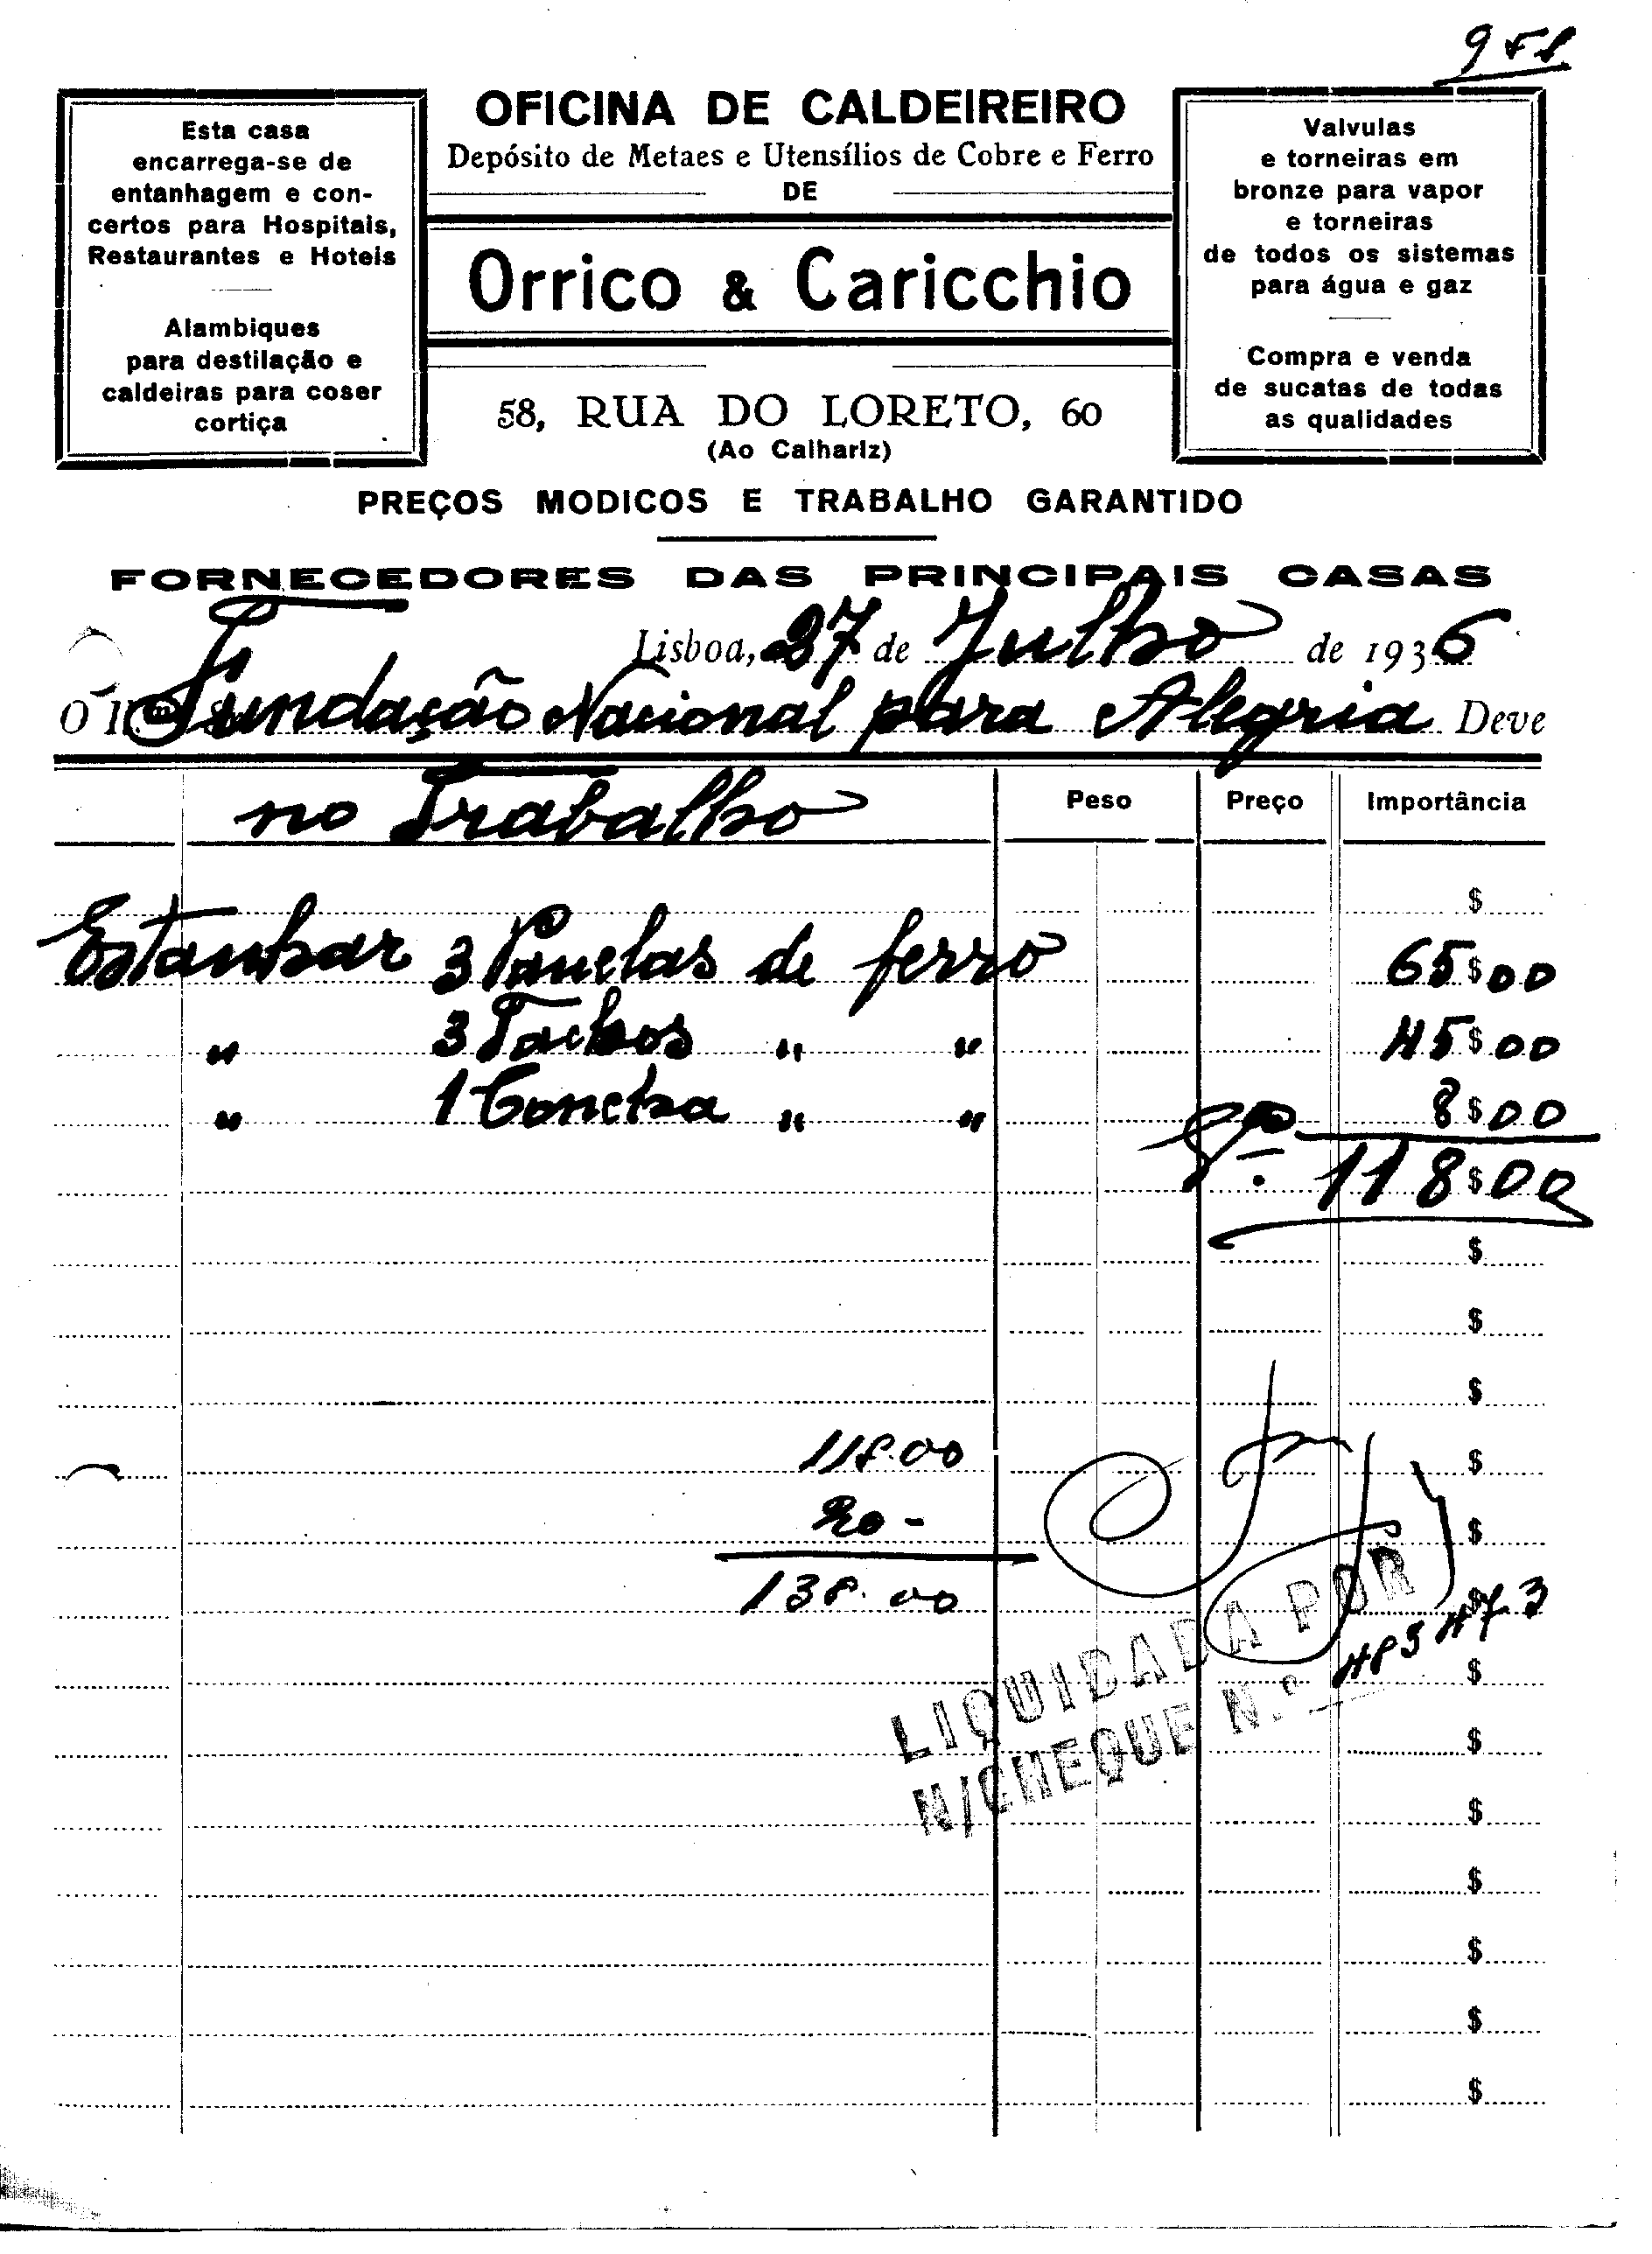 Esta casa
encarrega-se de
entanhagem e con-
certos para Hospitais,
Restaurantes e Hoteis
Alambiques
para destilação e
caldeiras para coser
cortiça
OFICINA DE CALDEIREIRO
Depósito de Metaes e Utensílios de Cobre e Ferro
DE
Orrico & Caricchio
58, RUA DO LORETO, 60
(Ao Calhariz)
Valvulas
e torneiras em
bronze para vapor
e torneiras
de todos os sistemas
para água e gaz
Compra e venda
de sucatas de todas
as qualidades
PREÇOS MODICOS E TRABALHO GARANTIDO
FORNECEDORES DAS PRINCIPAIS CASAS
Lisboa, 27 de Julho de 1936
O Fundação Nacional para Alegria Deve
no Trabalho Peso Preço Importância
$
Estanhar 3 Panelas de ferro 65$00
" 3 Tachos " " 45$00
" 1 Concha " " 8$00
118$00
$
$
$
118.00 $
20 - $
138.00 $
LIQUIDADA POR
N/CHEQUE N.º 483473
$
$
$
$
$
$
$